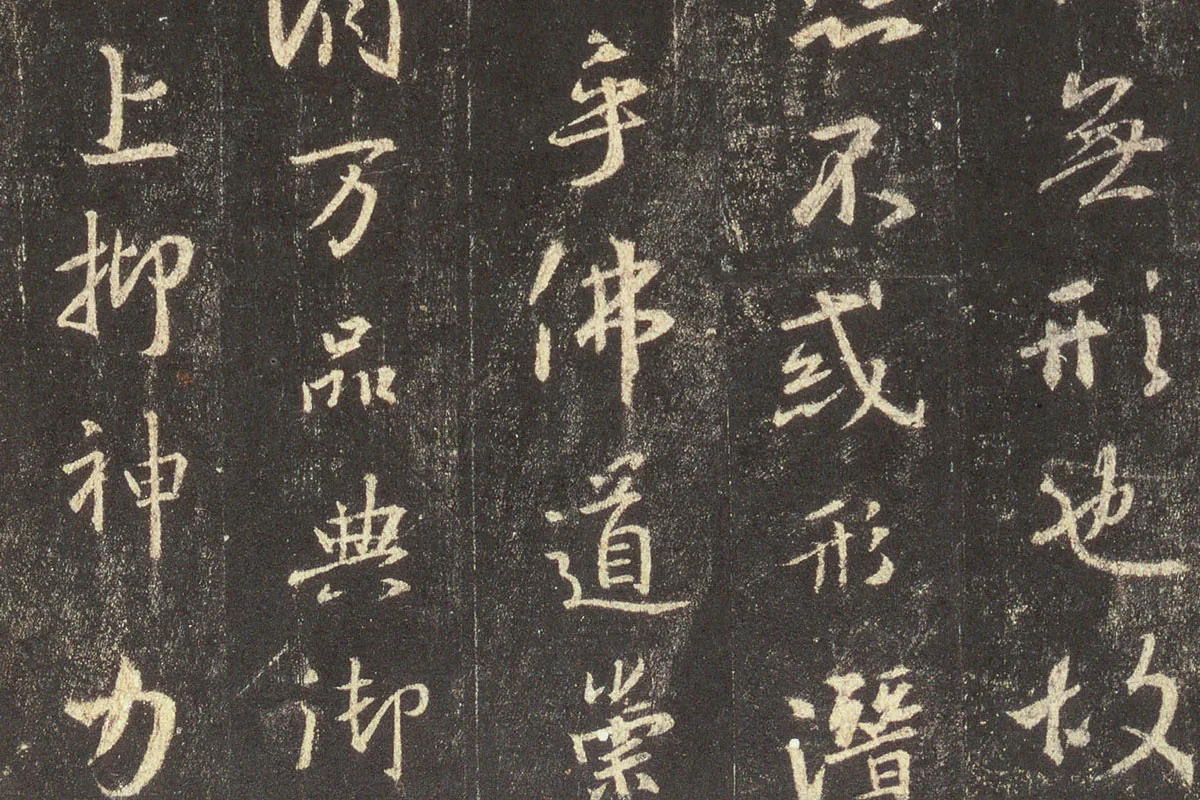 無形也故
不惑形潛
乎佛道崇
万品典御
上抑神力